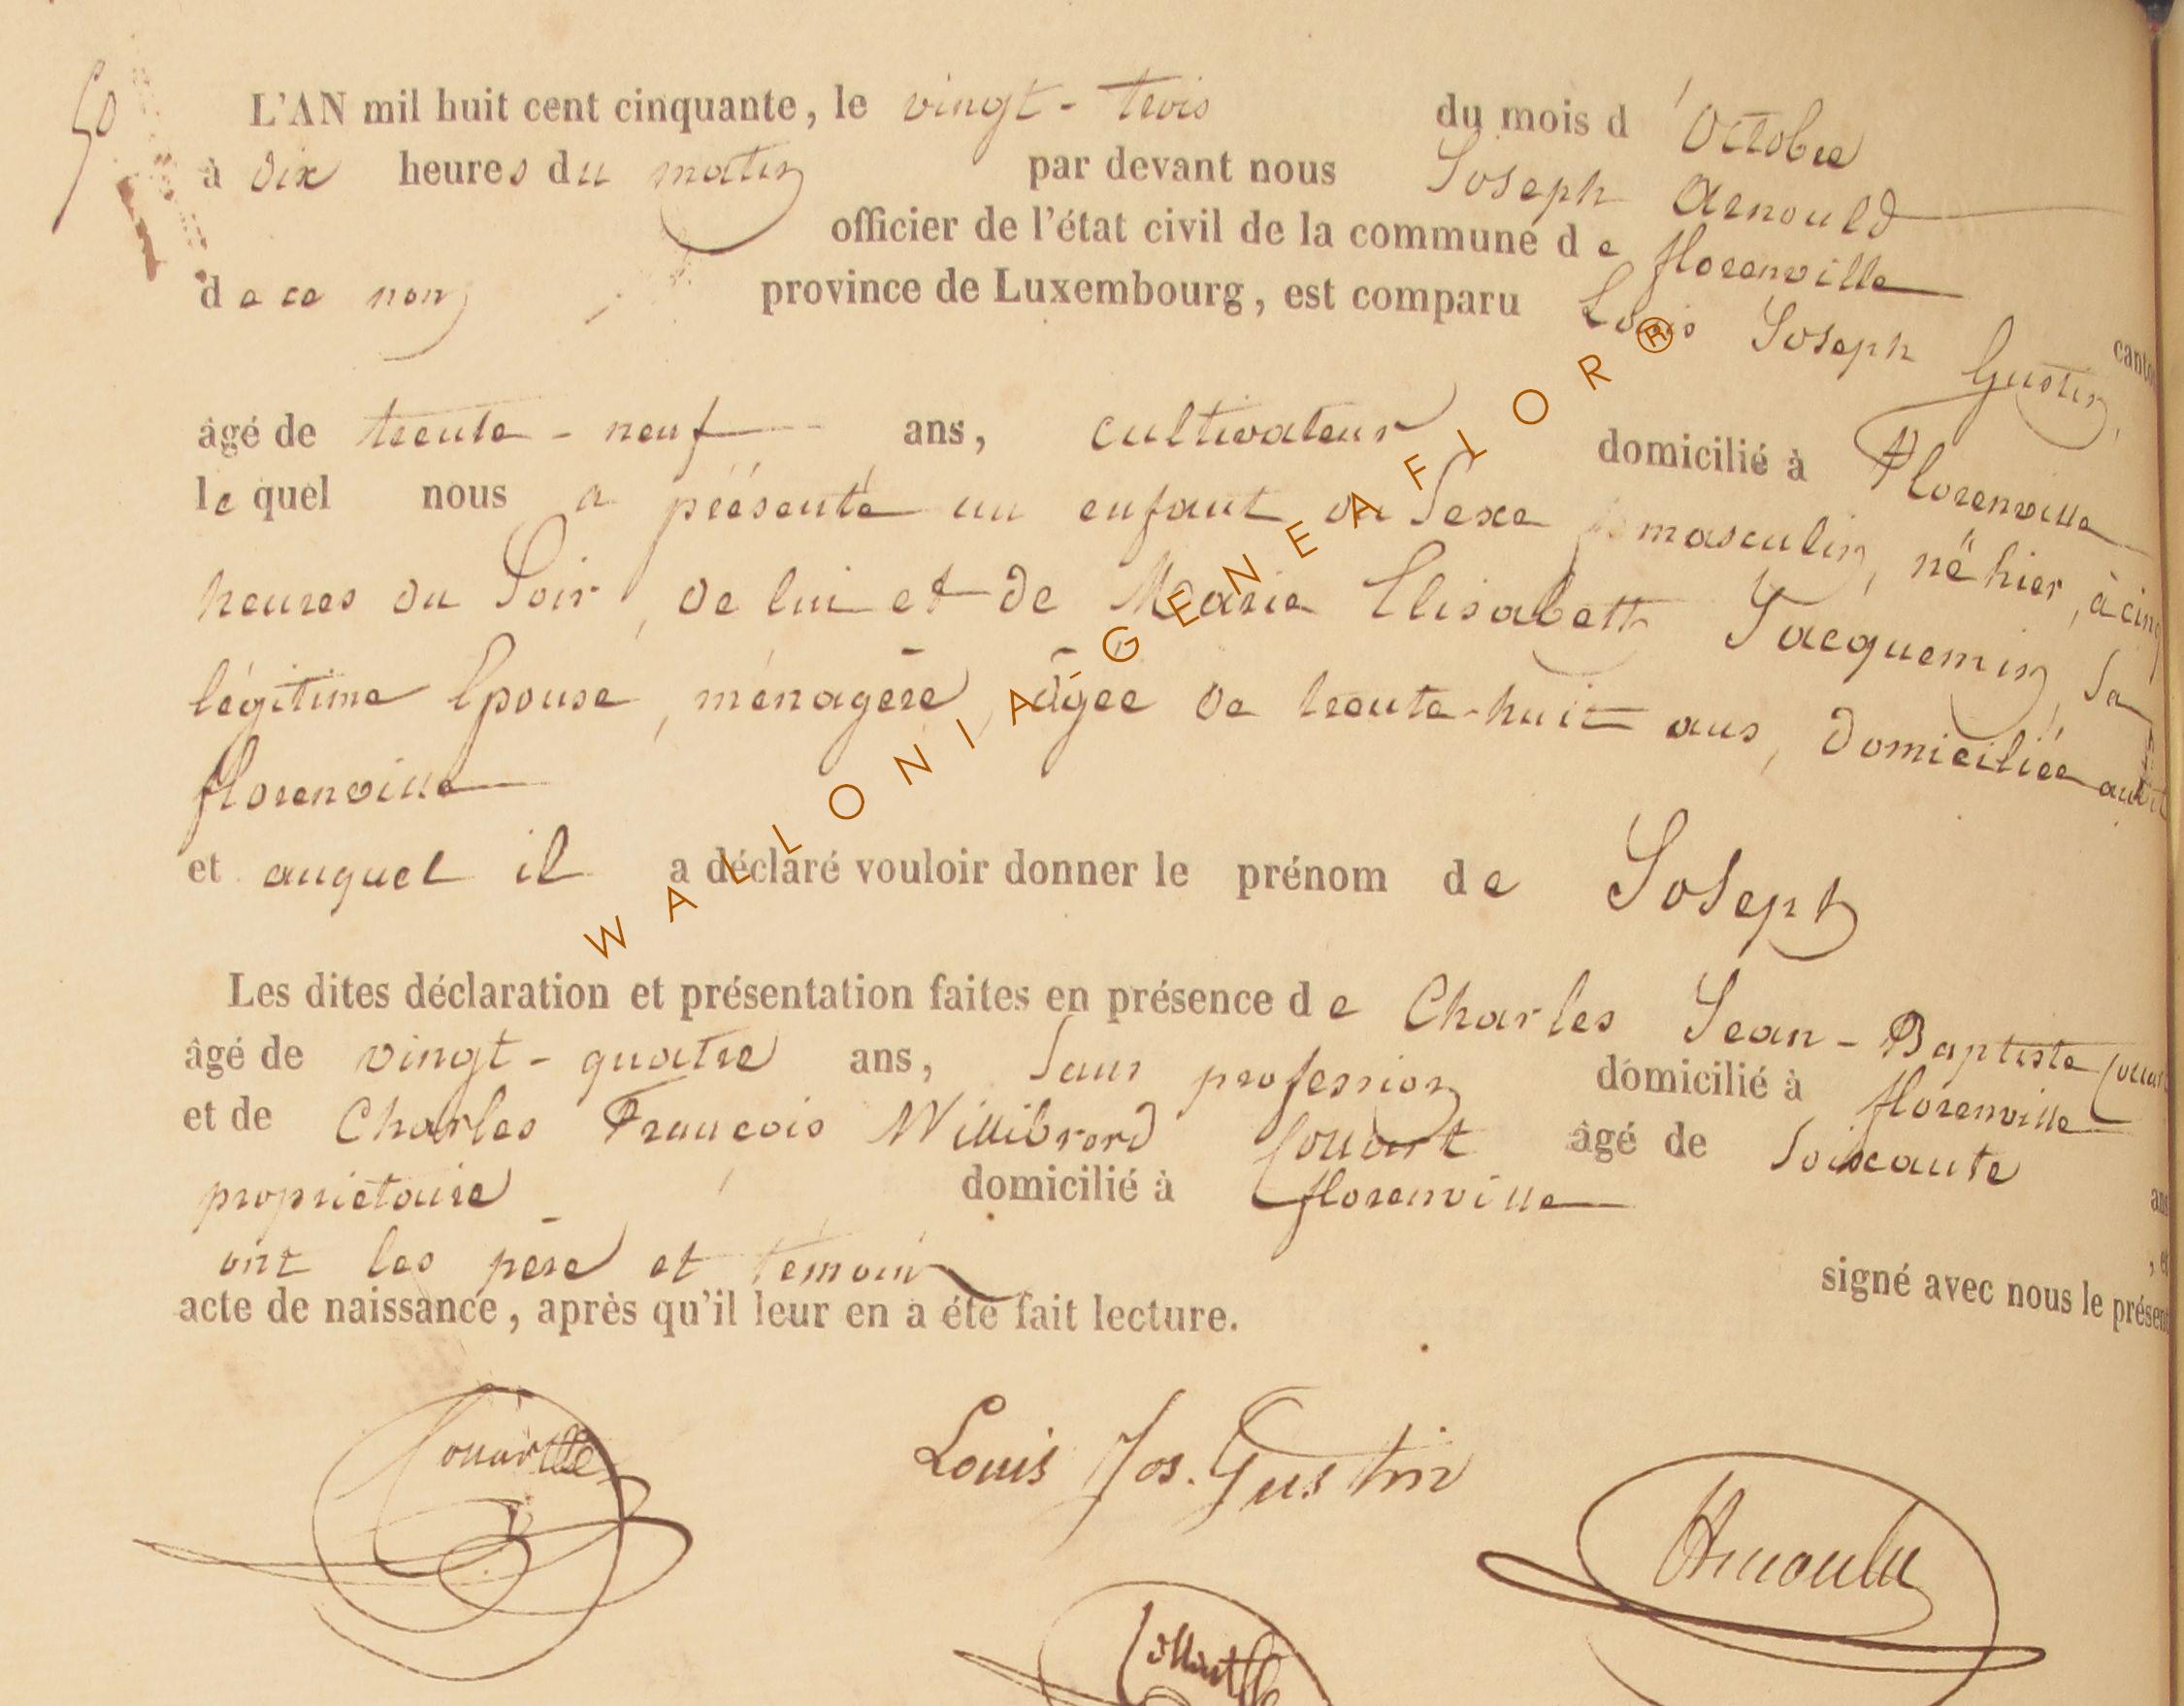 50
L'AN mil huit cent cinquante, le vingt-trois du mois d'Octobre
à dix heures du matin par devant nous Joseph Arnould
officier de l'état civil de la commune de florenville
de ce nom, province de Luxembourg, est comparu Louis Joseph Gustin,
âgé de trente-neuf ans, cultivateur domicilié à Florenville
lequel nous a présenté un enfant du Sexe masculin, né hier, à cinq
heures du Soir, de lui et de Marie Elisabeth Jacquemin, Sa
légitime Epouse, ménagère, âgée de trente-huit ans, domiciliée
florenville
et auquel il a déclaré vouloir donner le prénom de Joseph
Les dites déclaration et présentation faites en présence de Charles Jean-Baptiste
âgé de vingt-quatre ans, Sans profession domicilié à florenville
et de Charles François Willibrord âgé de Soixante ans
propriétaire domicilié à florenville
ont les père et témoins signé avec nous le présent
acte de naissance, après qu'il leur en a été fait lecture.
Louis Jos. Gustin
Arnould
WALLONIA-GENEAFLOR®